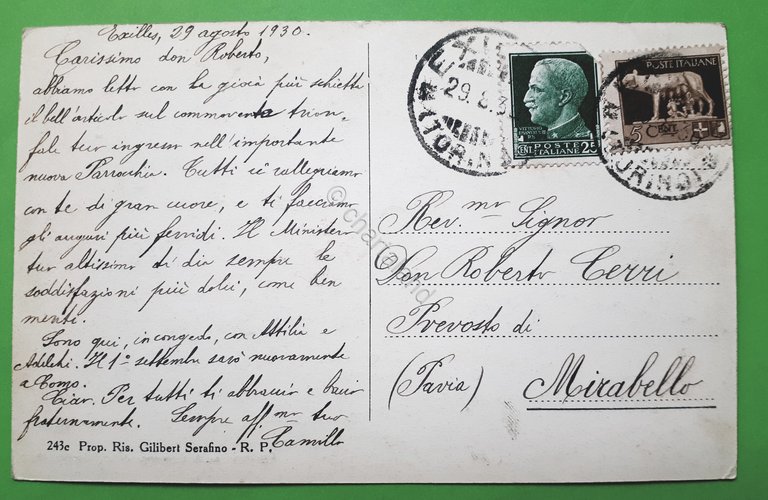 Exilles, 29 agosto 1930.
Carissimo don Roberto,
abbiamo letto con la gioia più schietta
il bell'articolo sul commovente trion-
fale tuo ingresso nell'importante
nuova Parrochia. Tutti ci rallegriamo
con te di gran cuore, e ti facciamo
gli auguri più fervidi. Il Ministero
tuo altissimo ti dia sempre le
soddisfazioni più dolci, come ben
menti.
Sono qui, in congedo, con Attilia e
Il 1º settembre sarò nuovamente
a Como.
Ciao. Per tutti ti abbraccio e bacio
fraternamente. Sempre aff.mo tuo
Camillo
243c Prop. Ris. Gilibert Serafino - R. P.
EXILLES
29.8.30
(TORINO)
VITTORIO
POSTE
CENT. ITALIANE 25
POSTE ITALIANE
5 CENT.
(TORINO)
Rev.mo Signor
Don Roberto Cerri
Prevosto di
(Pavia) Mirabello
© charteland